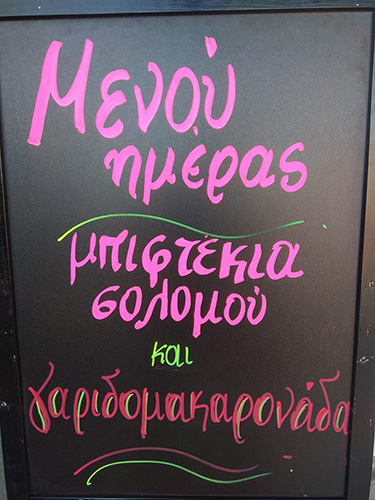 Μενού
ημέρας
μπιφτέκια
σολομού
και
γαριδομακαρονάδα